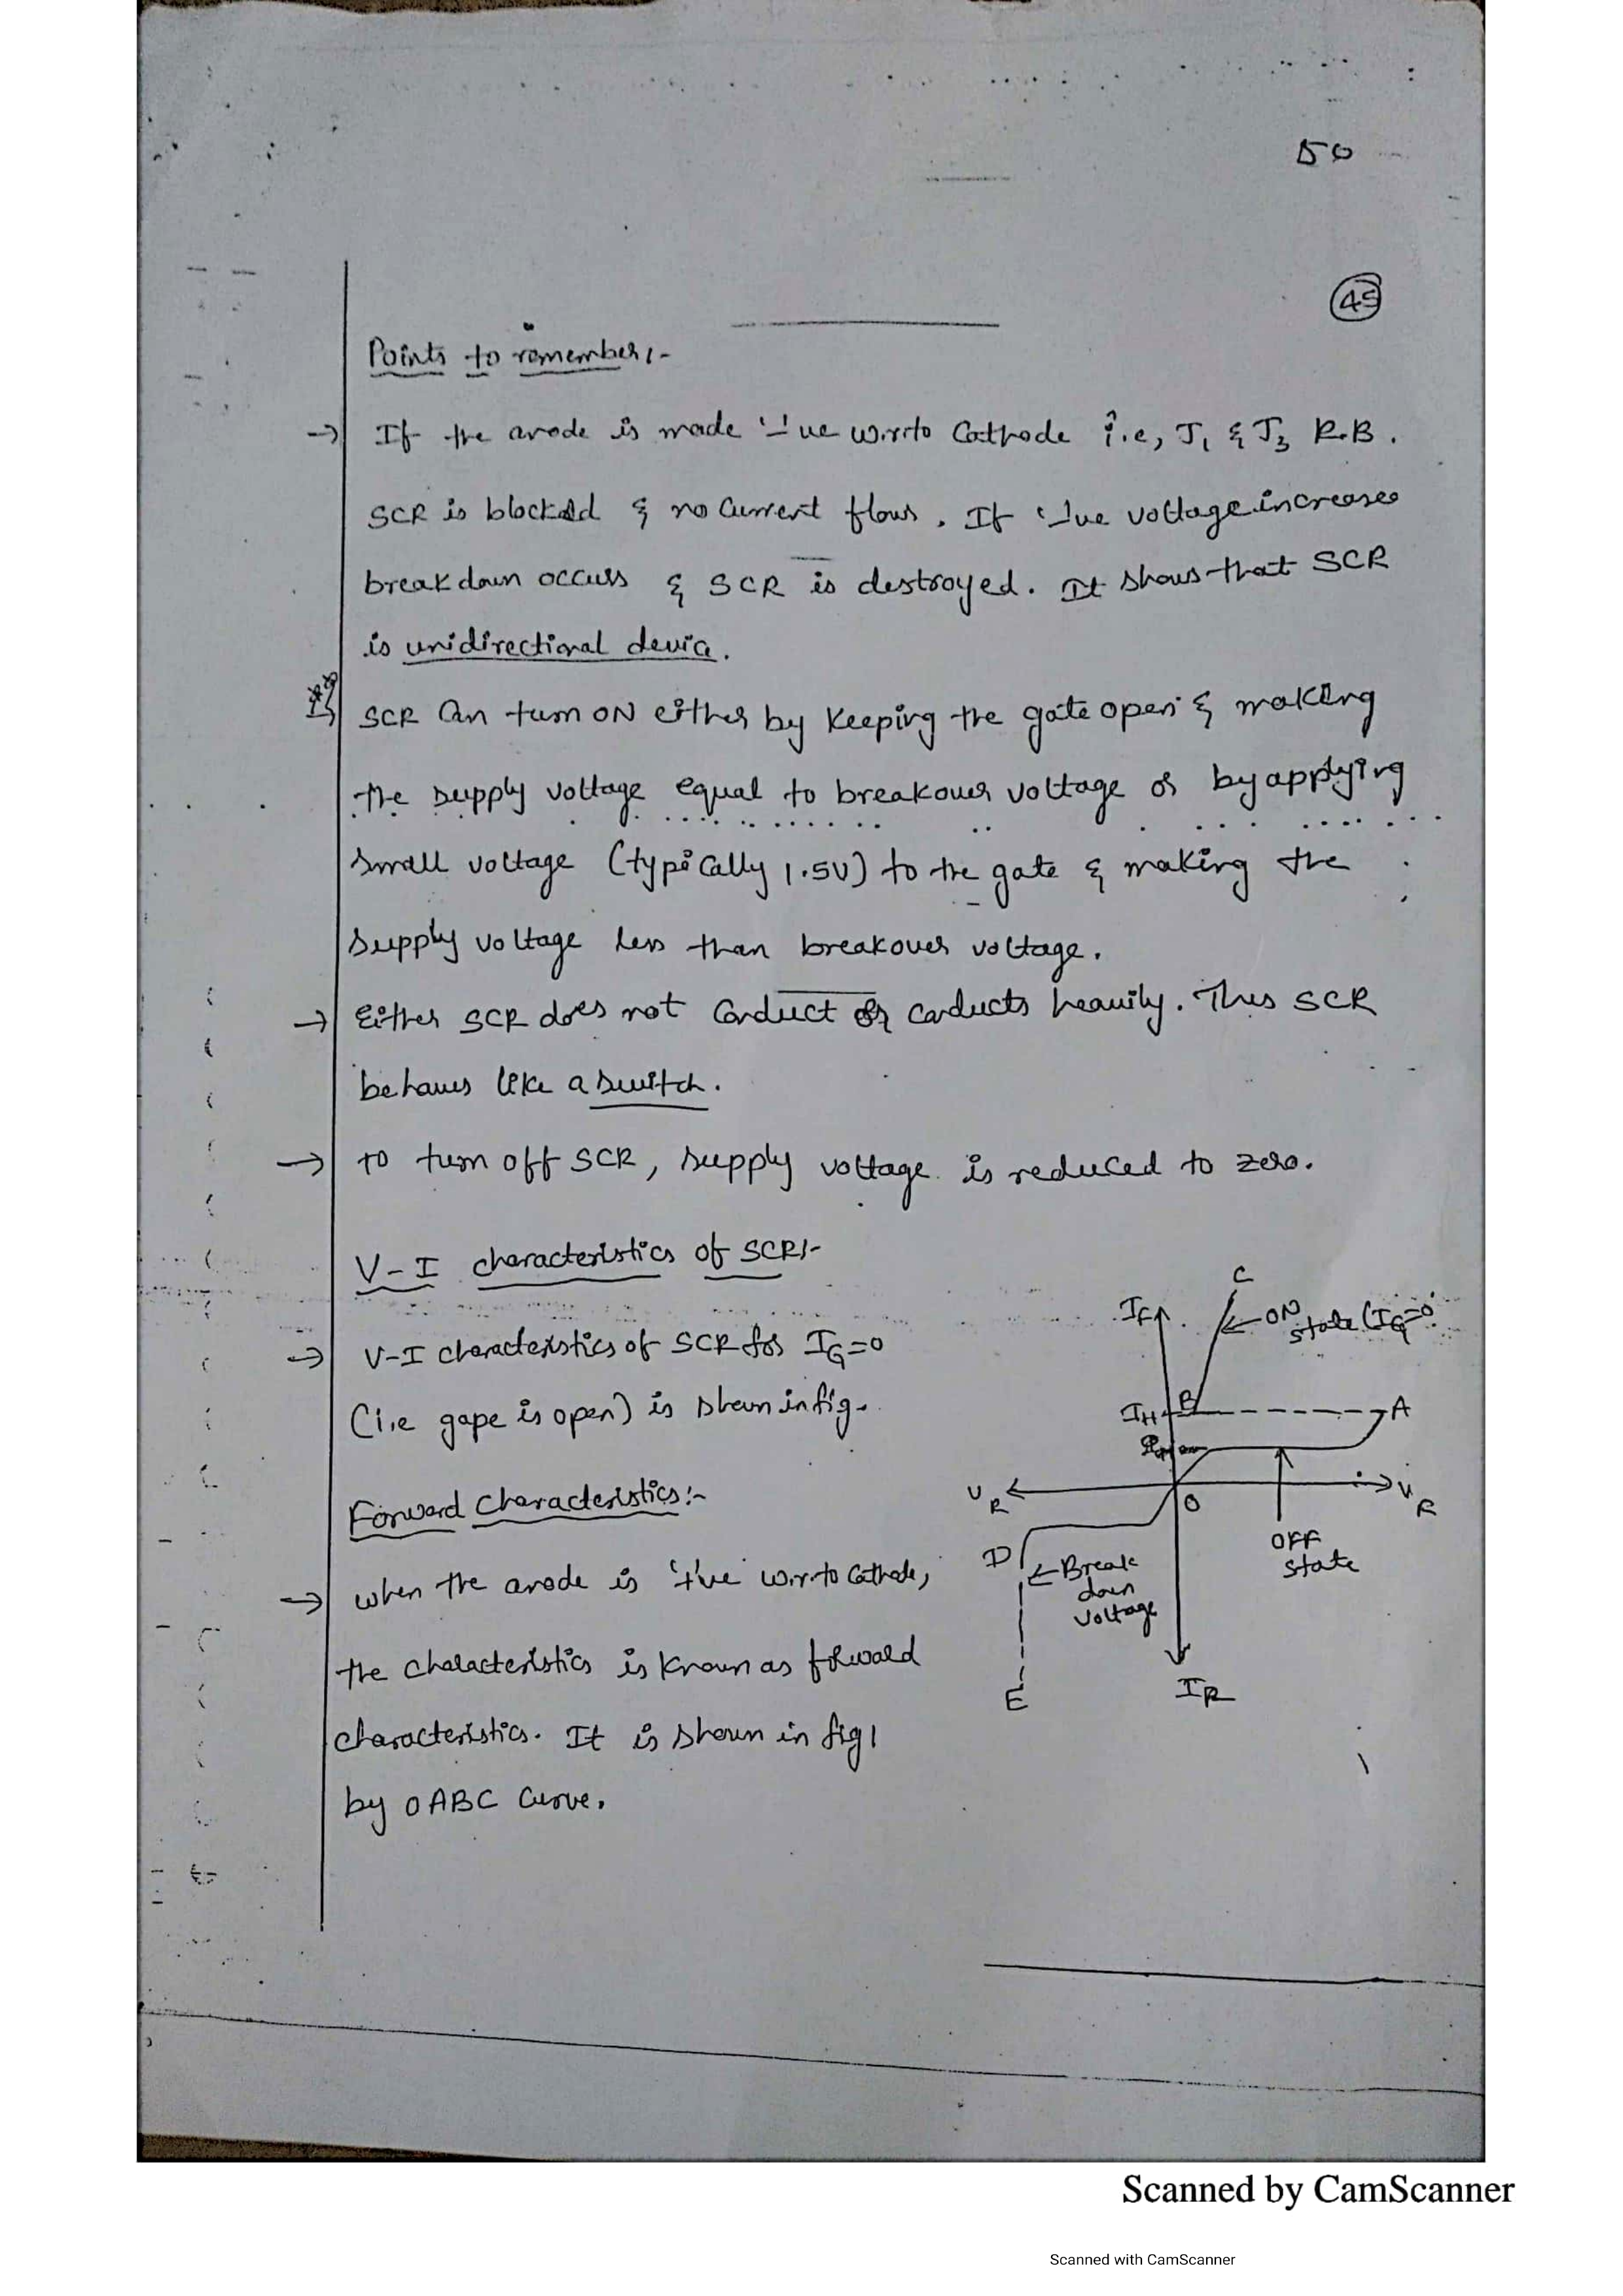 50
45
Points to remember:-
→ If the anode is made '-'ve w.r.to Cathode i.e, J1 & J3 R.B.
SCR is blocked & no Current flows. If '-'ve voltage increases
breakdown occurs & SCR is destroyed. It shows that SCR
is unidirectional device.
SCR Can turn ON either by Keeping the gate open & making
the supply voltage equal to breakover voltage or by applying
small voltage (typically 1.5V) to the gate & making the
supply voltage less than breakover voltage.
→ Either SCR does not Conduct or conducts heavily. Thus SCR
behaves like a switch.
→ To turn off SCR, supply voltage is reduced to zero.
V-I characteristics of SCR:-
→ V-I characteristics of SCR for IG=0
(i.e gape is open) is shown in fig.
Forward characteristics:-
→ when the anode is '+'ve w.r.to Cathode,
the characteristics is known as forward
characteristics. It is shown in fig1
by OABC Curve.
C
IF
← ON state (IG=0
IH
B
A
VR
O
VR
D
← Break down voltage
OFF state
E
IR
Scanned by CamScanner
Scanned with CamScanner